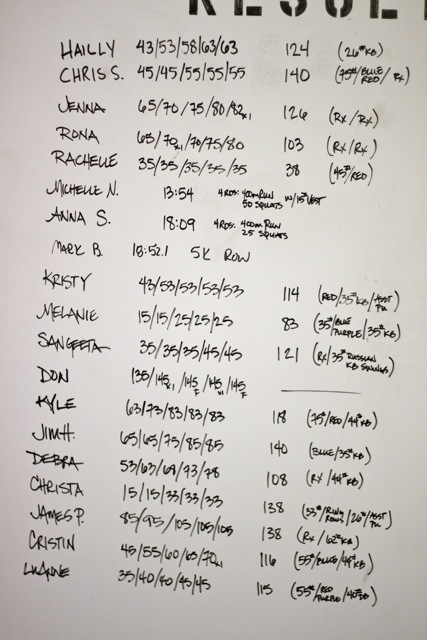 RESULT
HAILLY 43/53/58/63/63 124 (26# KB)
CHRIS S. 45/45/55/55/55 140 (75#/BLUE RED/RX)
JENNA 65/70/75/80/82x1 126 (RX/RX)
RONA 65/70x1/70/75/80 103 (RX/RX)
RACHELLE 35/35/35/35/35 38 (45#/RED)
MICHELLE N. 13:54 4 RDS: 400m RUN 50 SQUATS W/15# VEST
ANNA S. 18:09 4 RDS: 400m RUN 25 SQUATS
MARK B. 18:52.1 5K ROW
KRISTY 43/53/53/53/53 114 (RED/35# KB/ASST PU)
MELANIE 15/15/25/25/25 83 (35#/BLUE PURPLE/35# KB)
SANGEETA 35/35/35/45/45 121 (RX/35# RUSSIAN KB SWINGS)
DON 135/145x1/145F/145x1/145F
KYLE 63/73/83/83/83 118 (75#/RED/44# KB)
JIM H. 65/65/75/85/85 140 (BLUE/35# KB)
DEBRA 53/63/68/73/78 108 (RX/44# KB)
CHRISTA 15/15/33/33/33 138 (33#/RING ROWS/26#/ASST PU)
JAMES P. 85/95/105/105/105 138 (RX/62# KB)
CRISTIN 45/55/60/65/70x1 116 (55#/BLUE/44# KB)
LUANNE 35/40/40/45/45 115 (55#/RED PURPLE/40# DB)